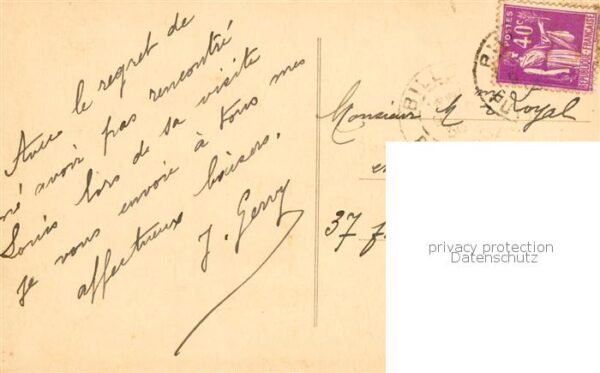 Avec le regret de
n'avoir pas rencontré
Louis lors de sa visite
je vous envoie à tous mes
affectueux baisers.
J. Gervy
POSTES
40c
REPUBLIQUE FRANÇAISE
BILL
Monsieur Royal
37
privacy protection
Datenschutz